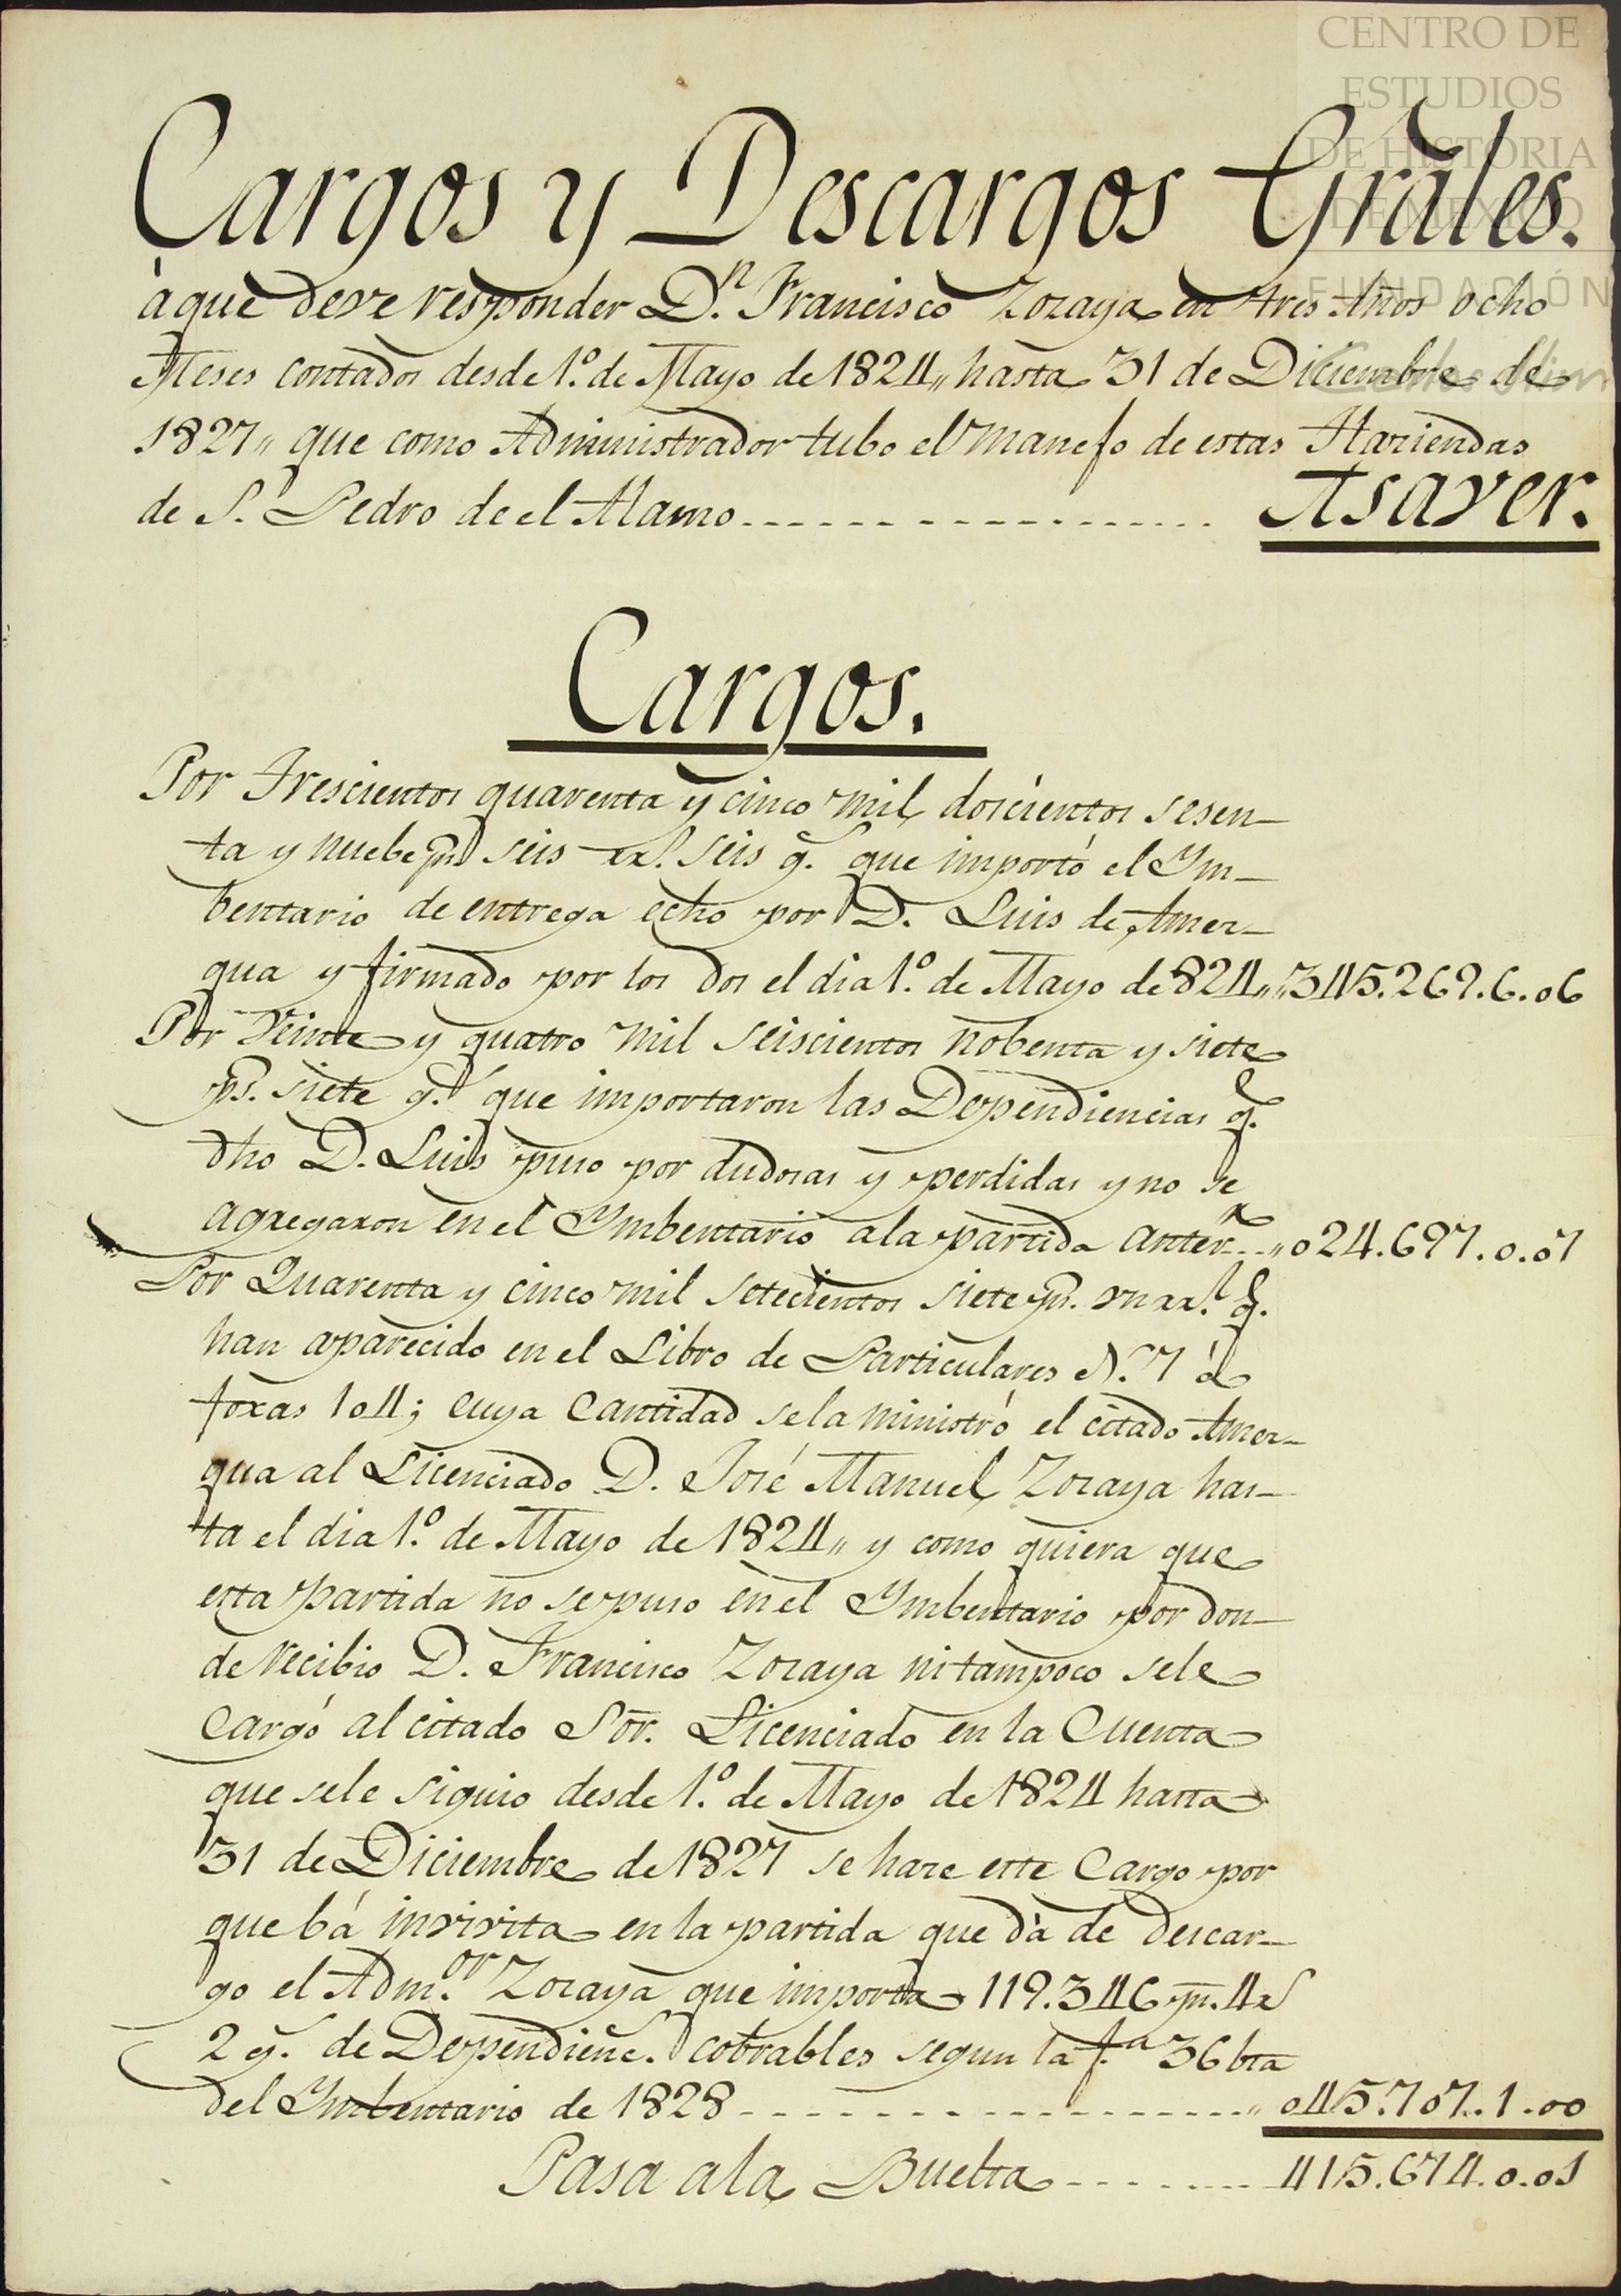 CENTRO DE
ESTUDIOS
DE HISTORIA
DE MEXICO
FUNDACIÓN
Cargos y Descargos Gráles.
à que deve responder D.n Francisco Zozaya en tres Años ocho
Meses contados desde 1.º de Mayo de 1824,, hasta 31 de Diciembre de
1827,, que como Administrador tubo el manejo de estas Haziendas
de S. Pedro de el Alamo.................... Asaver.
Cargos.
Por Trescientos quarenta y cinco mil doscientos sesen-
ta y nuebe ps. seis rr.s seis g.s que importó el Ym-
bentario de entrega echo por D. Luis de Amez-
qua y firmado por los dos el dia 1.º de Mayo de 824,, ,,345.269.6.06
Por Veinte y quatro mil seiscientos nobenta y siete
ps. siete g.s que importaron las Dependiencias q.e
dho D. Luis puso por dudosas y perdidas y no se
agregaron en el Ymbentario ala partida anter.r...,,024.697.0.07
Por Quarenta y cinco mil setecientos siete ps. un rr.l q.e
han aparecido en el Libro de Particulares N.º 7 à
foxas 104; cuya Cantidad sela ministró el citado Amez-
qua al Licenciado D. José Manuel Zozaya has-
ta el dia 1.º de Mayo de 1824,, y como quiera que
esta partida no se puso en el Ymbentario por don-
de recibio D. Francisco Zozaya ni tampoco sele
Cargó al citado Sor. Licenciado en la Cuenta
que sele siguio desde 1.º de Mayo de 1824 hasta
31 de Diciembre de 1827 se haze este Cargo por
que bá invivita en la partida que dà de descar-
go el Adm.or Zozaya que importa 119.346 ps. 4 rs
2 g.s de Dependienc.s cobrables segun la f.a 36 bta
del Ymbentario de 1828 - - - - - - - - - - - - - - - - ,, 045.707.1.00
Pasa ala Buelta - - - - - - - 415.674.0.01